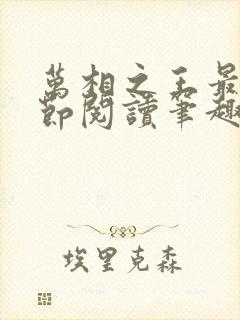 萬相之王最
節閱讀筆趣
埃里克森